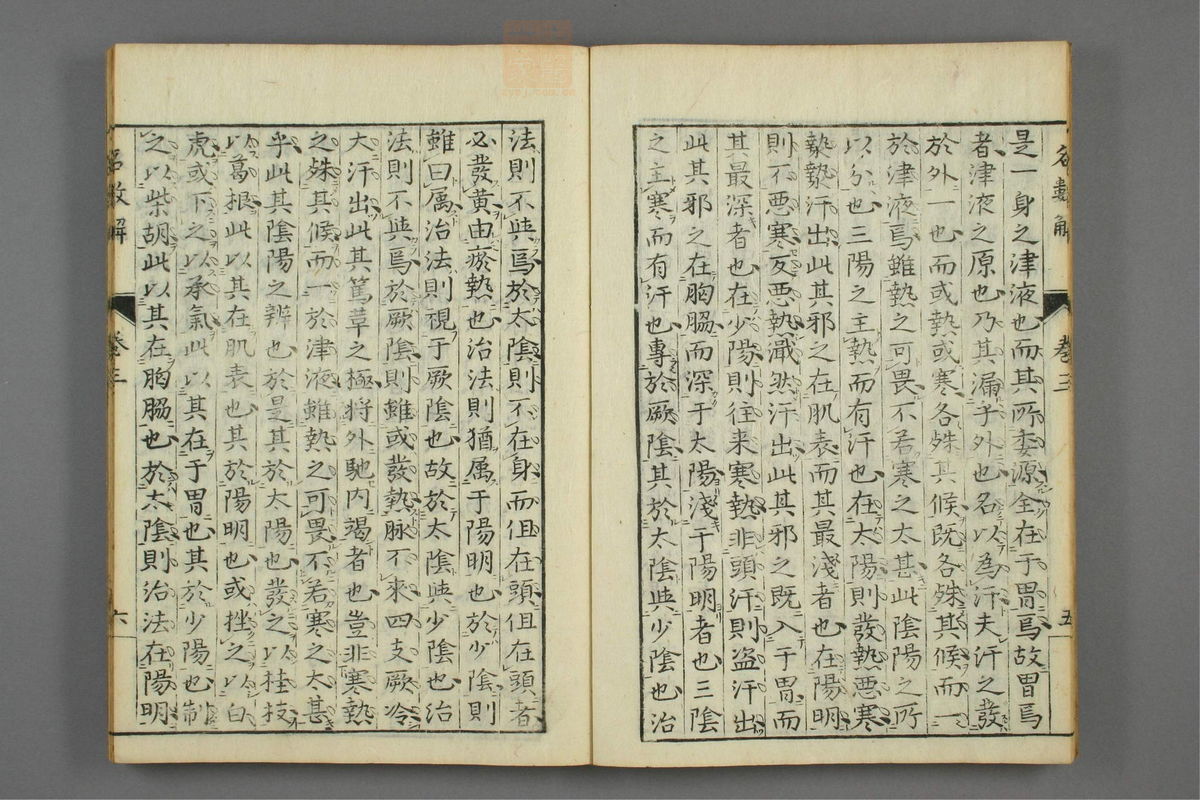 是一身之津液也而其所委源全在于胃焉故胃焉
者津液之原也乃其漏乎外也名以為汗夫汗之發
於外一也而或熱或寒各殊其候既各殊其候而一
於津液焉雖熱之可畏不若寒之太甚此陰陽之所
以分也三陽之主熱而有汗也在太陽則發熱惡寒
漐漐汗出此其邪之在肌表而其最淺者也在陽明
則不惡寒反惡熱濈然汗出此其邪之既入于胃而
其最深者也在少陽則往来寒熱非頭汗則盗汗出
此其邪之在胸脇而深于太陽淺于陽明者也三陰
之主寒而有汗也專於厥陰其於太陰與少陰也治
名數解
卷三
五
法則不與焉於太陰則不在身而但在頭但在頭者
必發黄由瘀熱也治法則猶属于陽明也於少陰則
雖曰属治法則視于厥陰也故於太陰與少陰也治
法則不與焉於厥陰則雖或發熱脉不來四支厥冷
大汗出此其篤草之極将外馳内竭者也豈非寒熱
之殊其候而一於津液雖熱之可畏不若寒之太甚
乎此其陰陽之辨也於是其於太陽也發之以桂枝
以葛根此以其在肌表也其於陽明也或挫之以白
虎或下之以承氣此以其在于胃也其於少陽也制
之以柴胡此以其在胸脇也於太陰則治法在陽明
名數解
卷三
六